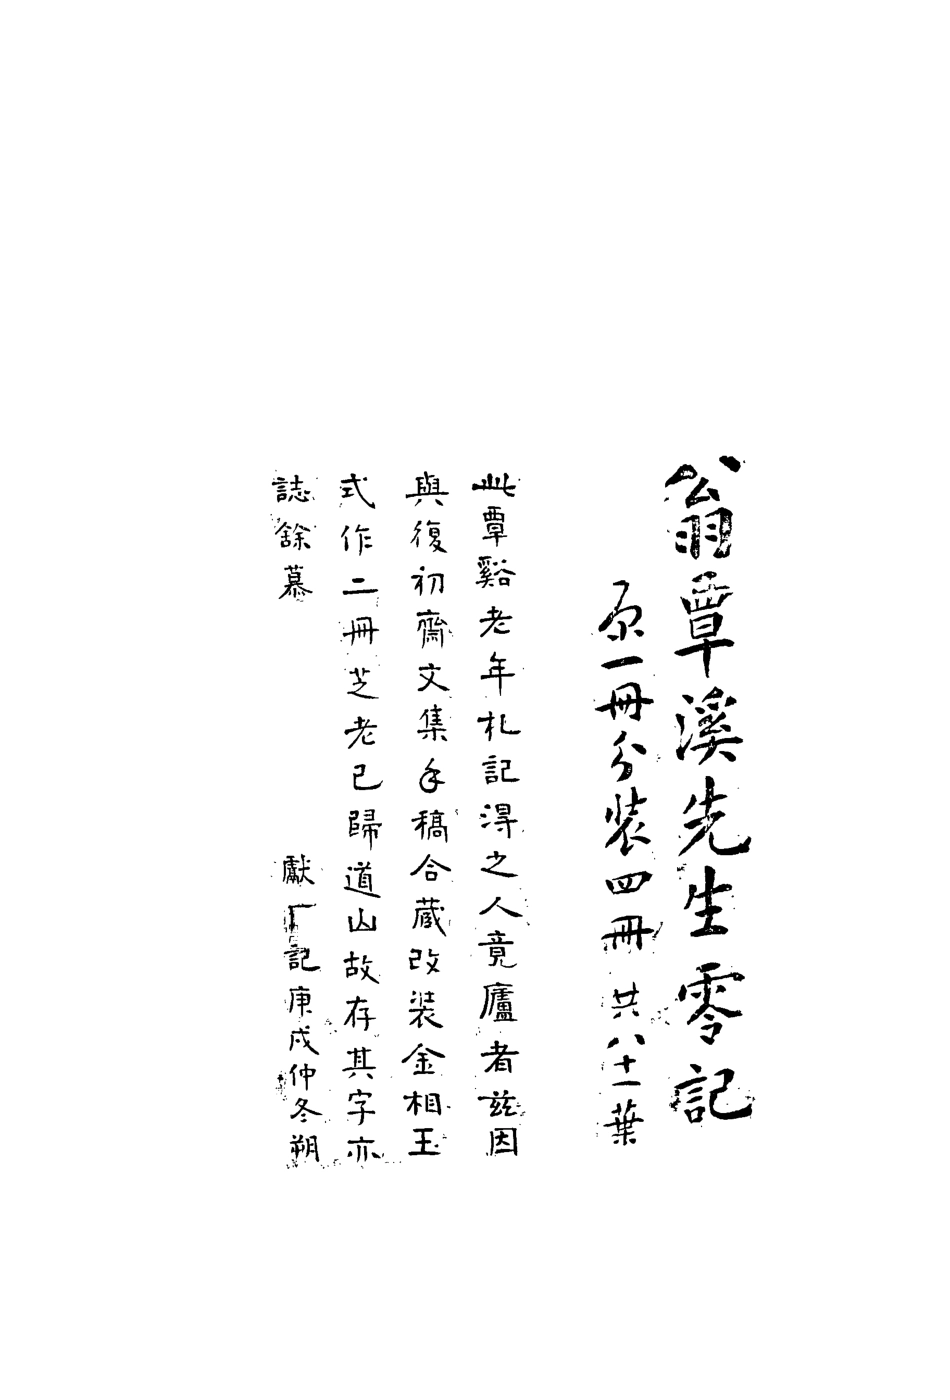 翁覃溪先生零記
原一冊分装四冊 共八十一葉
此覃谿老年札記淂之人竟廬者茲因
與復初齋文集手稿合蔵改装金相玉
式作二冊芝老已歸道山故存其字亦
誌餘慕
獻厂記庚戍仲冬朔